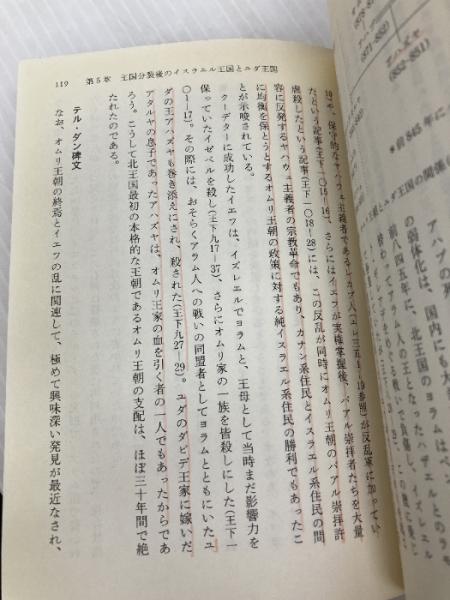 119　第5章　王国分裂後のイスラエル王国とユダ王国
10や、保守的なヤハウェ主義者であるレカブ人(エレ三五1―19参照)が反乱軍に加っていたという記事(王下一〇15―16)、さらにはイエフが実権掌握後、バアル崇拝者たちを大量
虐殺したという記事(王下一〇18―28)には、この反乱が同時にオムリ王朝のバアル崇拝許
容に反発するヤハウェ主義者の宗教革命でもあり、カナン系住民とイスラエル系住民の間
に均衡を保とうとするオムリ王朝の政策に対する純イスラエル系住民の勝利でもあったこ
とが示唆されている。
クーデターに成功したイエフは、イズレエルでヨラムと、王母として当時まだ影響力を
保っていたイゼベルを殺し(王下九17―37)、さらにオムリ家の一族を皆殺しにした(王下一
〇1―17)。その際には、おそらくアラム人への戦いの同盟者としてヨラムとともにいたユ
ダの王アハズヤも巻き添えにされ、殺された(王下九27―29)。ユダのダビデ王家に嫁いだ
アタルヤの息子であったアハズヤは、オムリ王家の血を引く者の一人でもあったからであ
ろう。こうして北王国最初の本格的な王朝であるオムリ王朝の支配は、ほぼ三十年間で絶
たれたのである。
テル・ダン碑文
なお、オムリ王朝の終焉とイエフの乱に関連して、極めて興味深い発見が最近なされ、